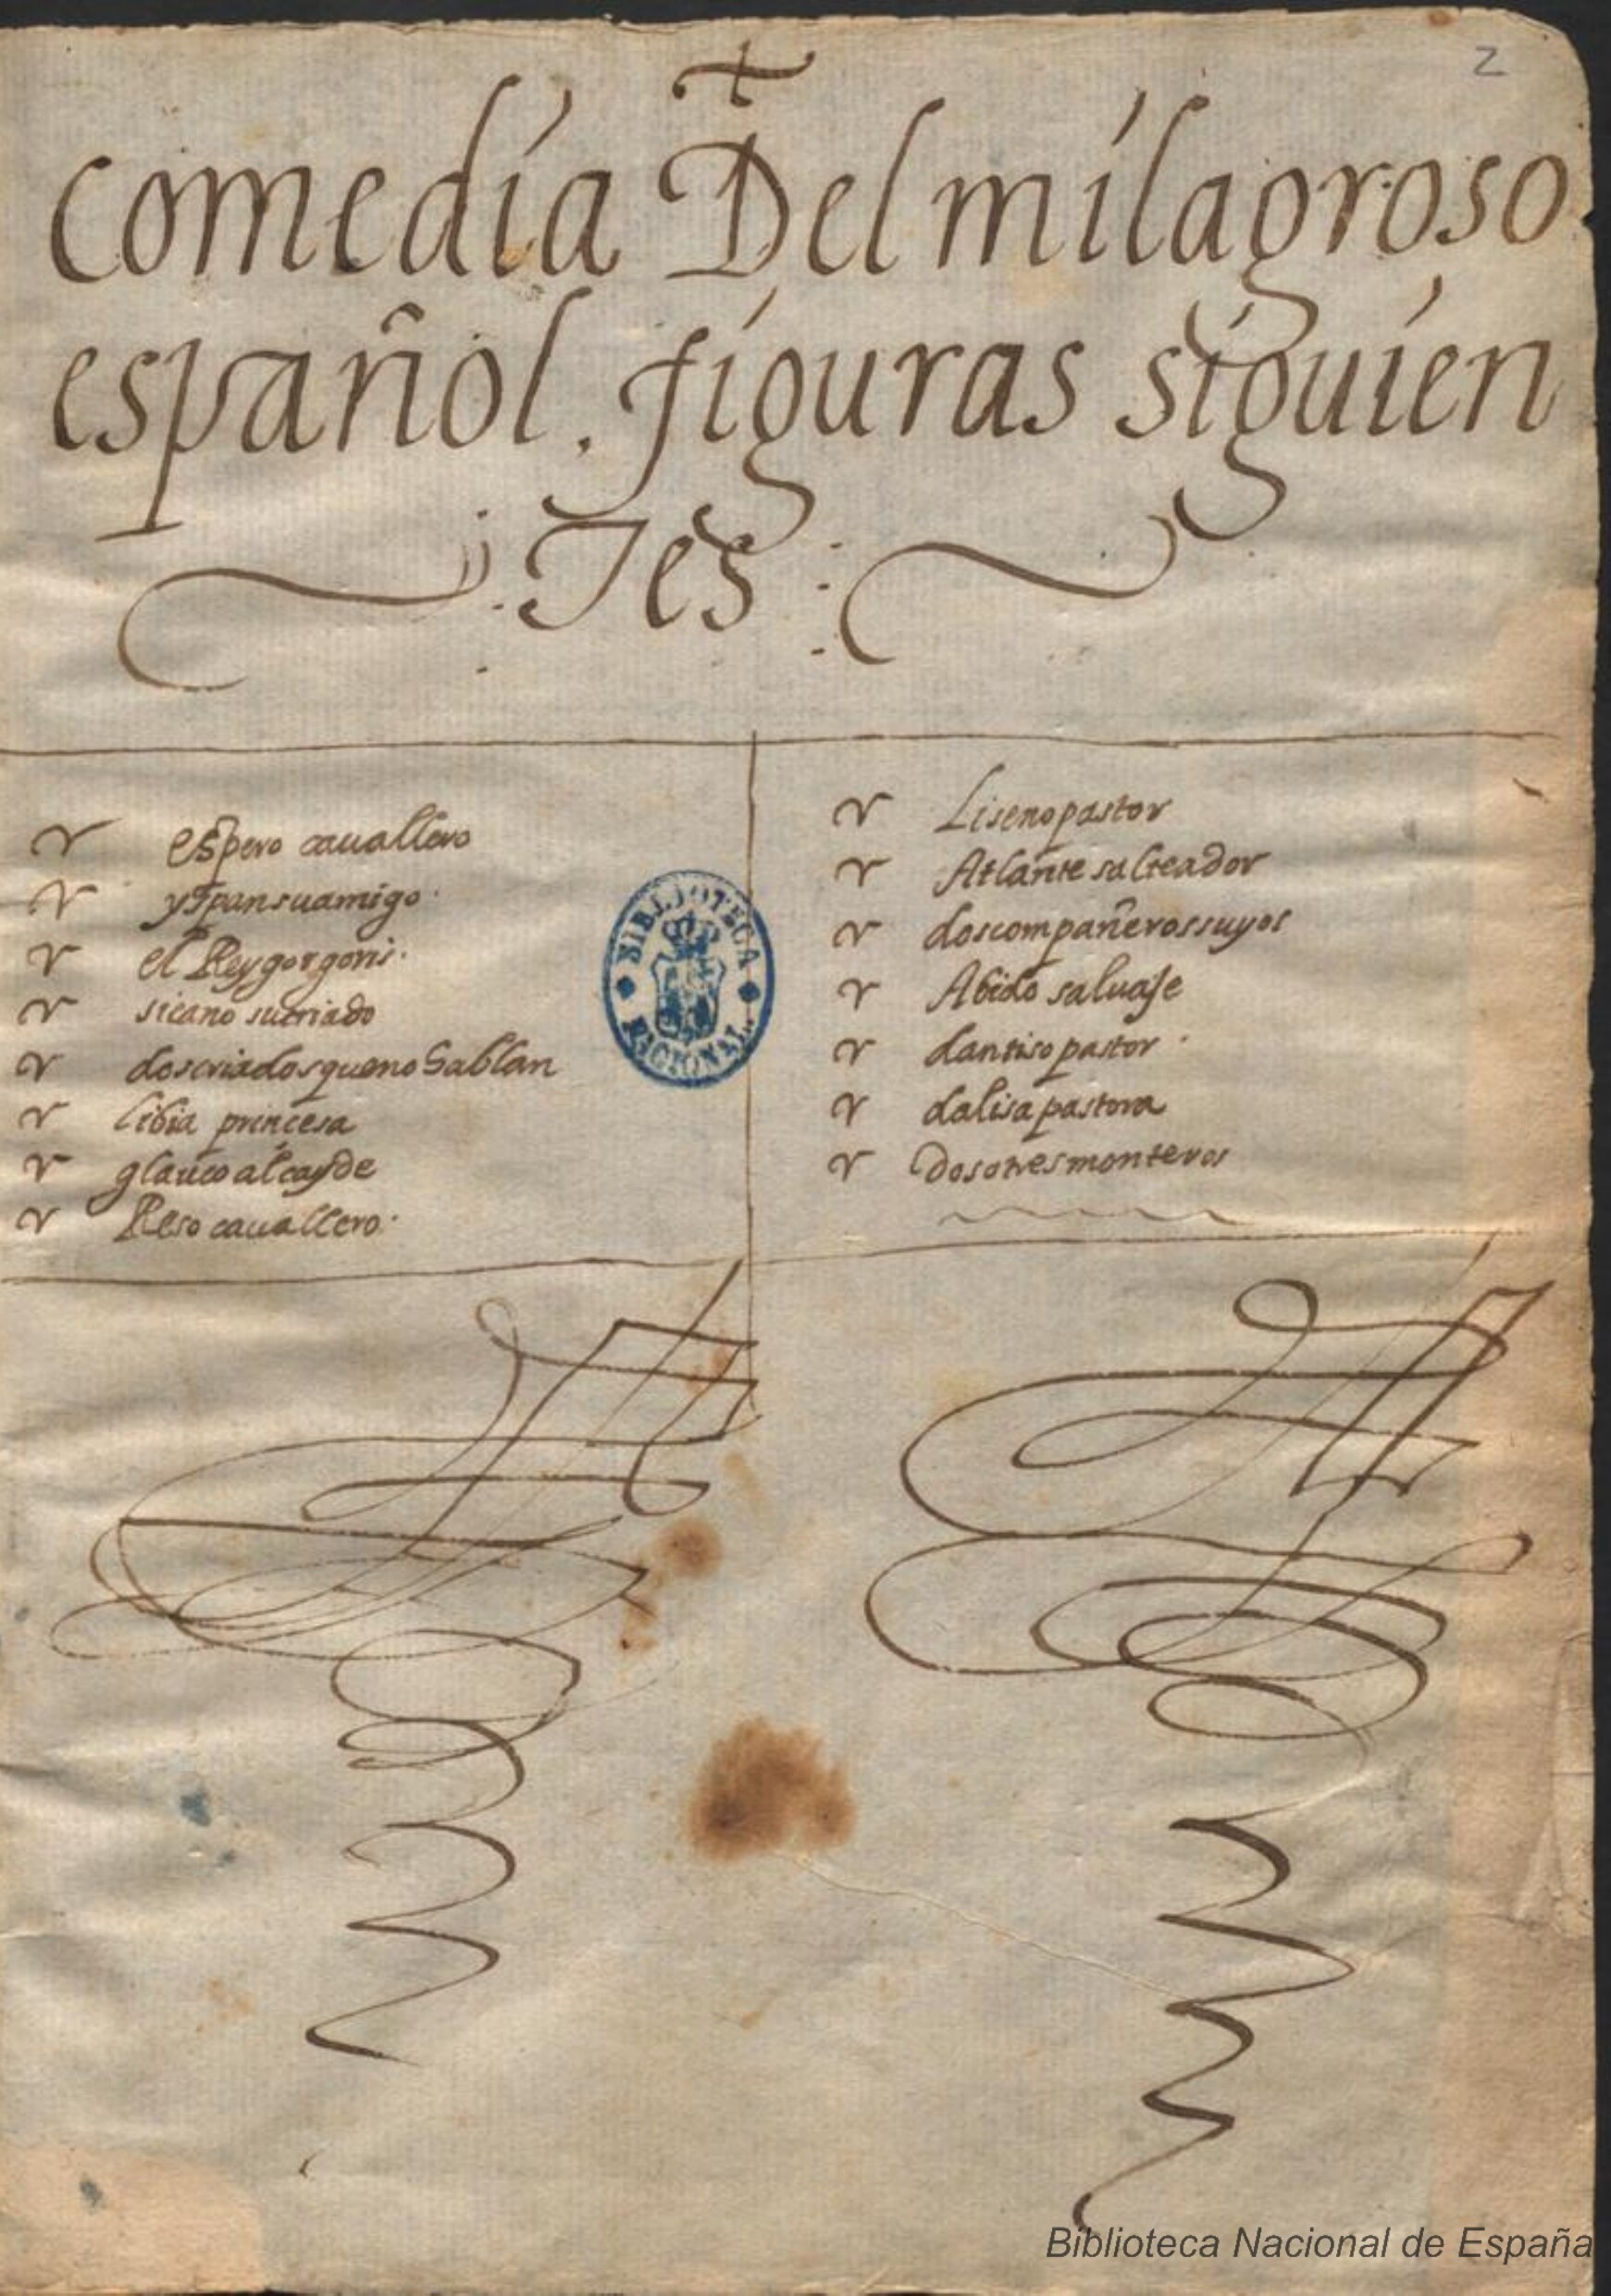 2
comedia Del milagroso
español. figuras siguien
tes
espero cavallero
yspan su amigo
el Rey gorgoris.
sicano su criado
dos criados que no hablan
libia princesa
glauco alcayde
Reso cavallero.
Liseno pastor
Atlante salteador
dos compañeros suyos
Abido salvaje
dantiso pastor
dalisa pastora
dos o tres monteros
BIBLIOTECA
NACIONAL
Biblioteca Nacional de España